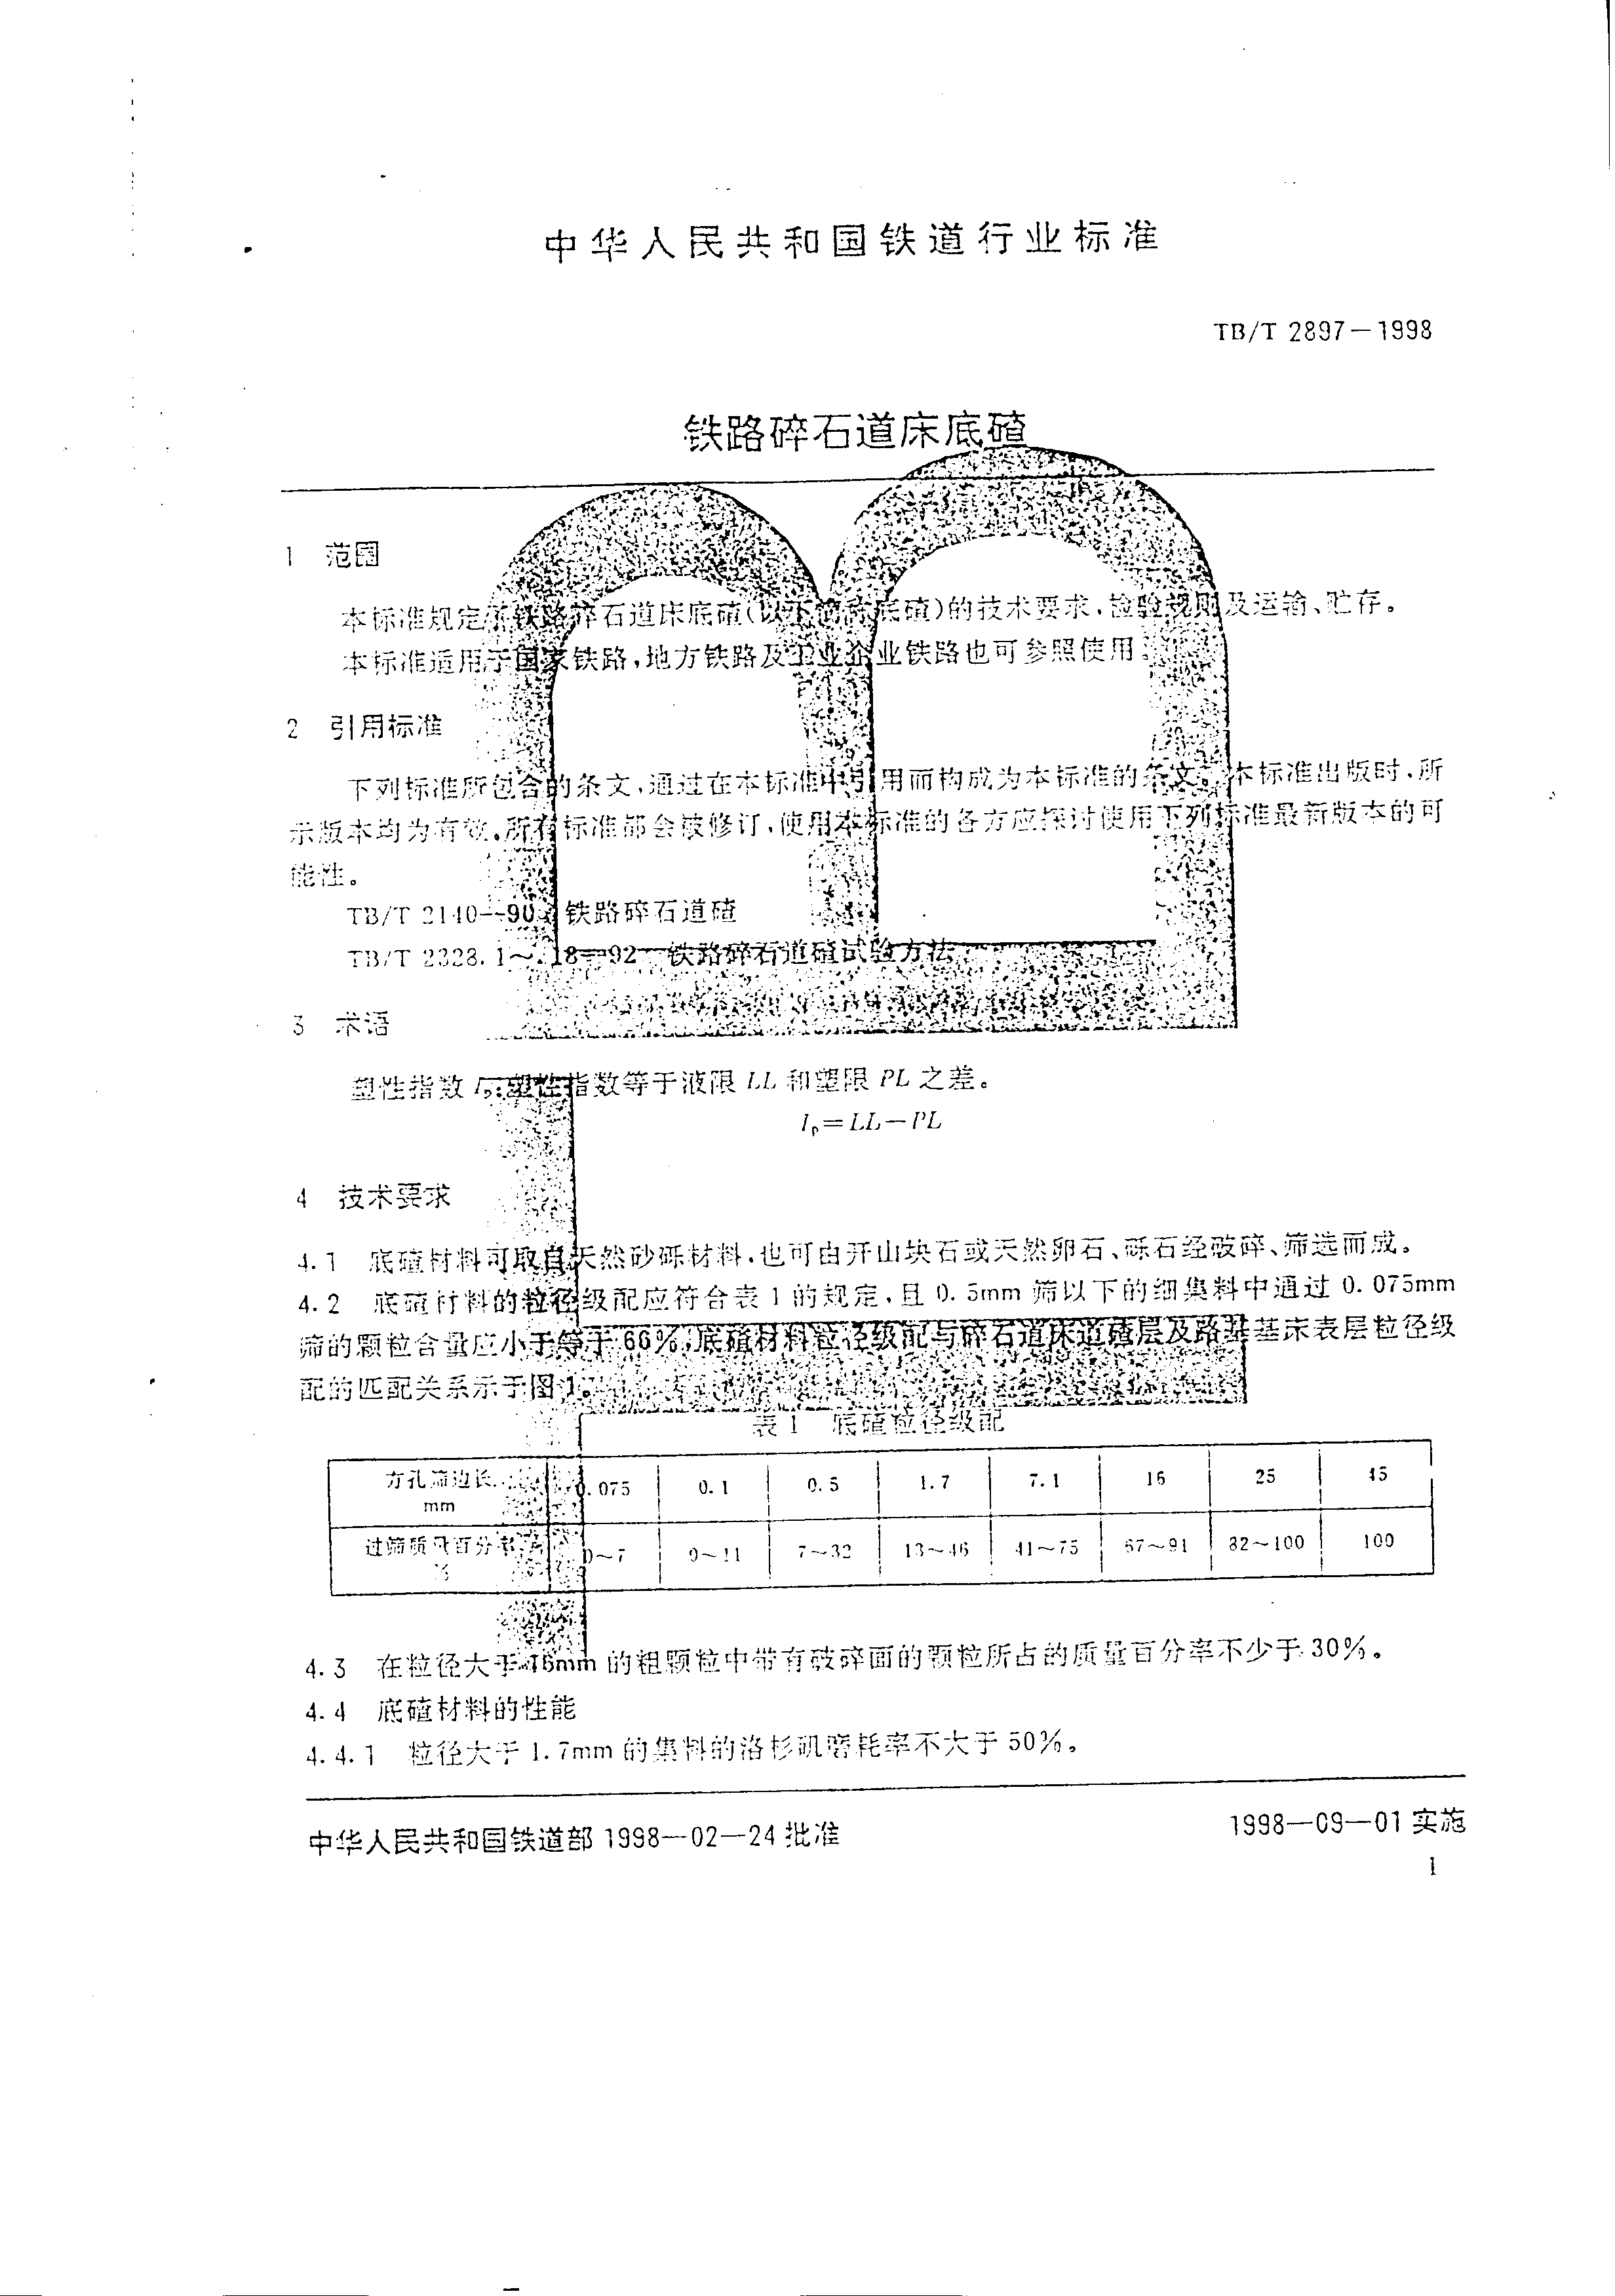 中华人民共和国铁道行业标准
TB/T 2897—1998
铁路碎石道床底碴
1 范围
本标准规定了铁路碎石道床底碴(以下简称底碴)的技术要求、检验规则及运输、贮存。
本标准适用于国家铁路,地方铁路及工业企业铁路也可参照使用。
2 引用标准
下列标准所包含的条文,通过在本标准中引用而构成为本标准的条文。本标准出版时,所
示版本均为有效。所有标准都会被修订,使用本标准的各方应探讨使用下列标准最新版本的可
能性。
TB/T 2140—90 铁路碎石道碴
TB/T 2328.1～.18—92 铁路碎石道碴试验方法
3 术语
塑性指数 Ip:塑性指数等于液限 LL 和塑限 PL 之差。
Ip=LL—PL
4 技术要求
4.1 底碴材料可取自天然砂砾材料,也可由开山块石或天然卵石、砾石经破碎、筛选而成。
4.2 底碴材料的粒径级配应符合表 1 的规定,且 0.5mm 筛以下的细集料中通过 0.075mm
筛的颗粒含量应小于等于 66%,底碴材料粒径级配与碎石道床道碴层及路基基床表层粒径级
配的匹配关系示于图 1。
表 1 底碴粒径级配
方孔筛边长 0.075 0.1 0.5 1.7 7.1 16 25 45
mm
过筛质量百分率 0～7 0～11 7～32 13～46 41～75 67～91 82～100 100
%
4.3 在粒径大于 16mm 的粗颗粒中带有破碎面的颗粒所占的质量百分率不少于 30%。
4.4 底碴材料的性能
4.4.1 粒径大于 1.7mm 的集料的洛杉矶磨耗率不大于 50%。
中华人民共和国铁道部 1998—02—24 批准
1998—09—01 实施
1